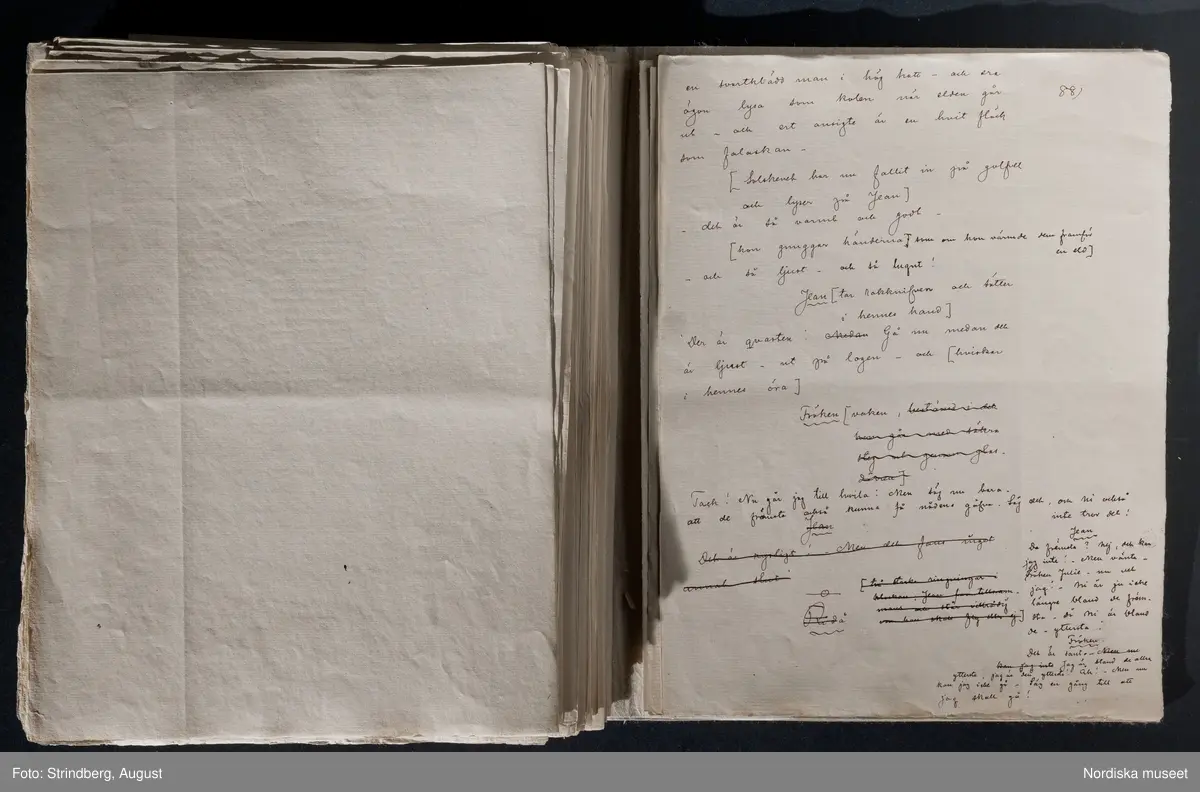 en svartklädd man i hög hatt – och era
88)
ögon lysa som kolen när elden går
ut – och ert ansigte är en hvit fläck
som falaskan –
[Solskenet har nu fallit in på golfvet
och lyser på Jean]
– det är så varmt och godt –
[hon gnuggar händerna] som om hon värmde dem framför
en eld]
– och så ljust – och så lugnt!
Jean [tar rakknifven och sätter
i hennes hand]
Der är qvasten! Medan Gå nu medan det
är ljust – ut på logen – och [hviskar
i hennes öra]
Fröken [vaken, bestämd i det
hon går med säkra
steg ut genom glas-
dörren]
Tack! Nu går jag till hvila! Men säg nu bara –
att de främste också kunna få nådens gåfva. Säg det, om ni också
inte tror det!
Jean
Det är nyligt! – Men det fans något
annat
[två starka ringningar
Jean
mans
om han skall]
Ridå
Jean
De främste? Nej, det kan
jag inte! – Men vänta –
Fröken Julie – nu vet
jag! – Ni är ju icke
längre bland de främ-
sta – då ni är bland
de – yttersta!
Fröken
Det är sant. – Men nu
kan jag inte Jag är bland de allra
ytterste; jag är den ytterste! Åh! – Men nu
kan jag icke gå – Säg en gång till att
jag skall gå!
Foto: Strindberg, August
Nordiska museet